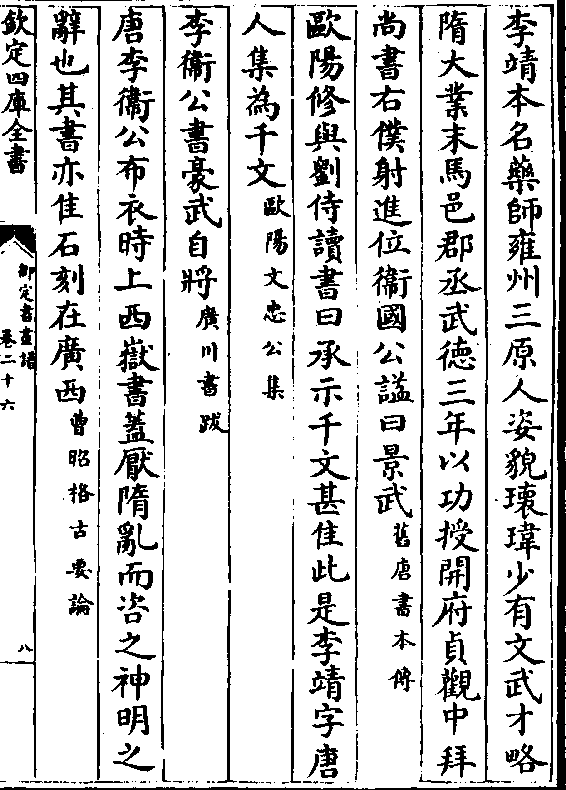 李靖本名藥師雍州三原人姿貌瓌瑋少有文武才略
隋大業末馬邑郡丞武德三年以功授開府貞觀中拜
尚書右僕射進位衞國公謚曰景武舊唐書本傳
歐陽修與劉侍讀書曰承示千文甚佳此是李靖字唐
人集為千文歐陽文忠公集
李衞公書豪武自將廣川書跋
唐李衞公布衣時上西嶽書蓋厭隋亂而咨之神明之
辭也其書亦佳石刻在廣西曹昭格古要論
欽定四庫全書
御定書畫譜
卷二十六
八